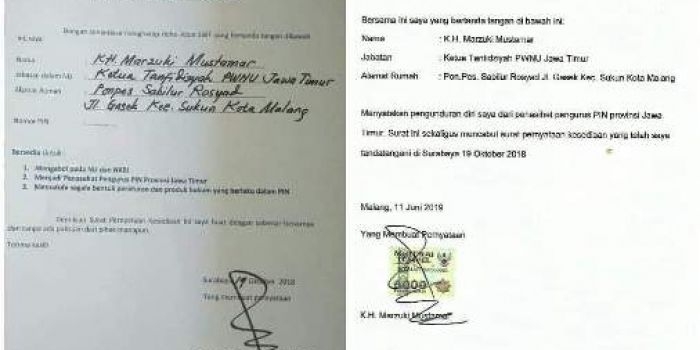 Dengan senantiasa mengharap ridho Allah SWT yang bertanda tangan dibawah
ini, saya
Nama : K.H. Marzuki Mustamar
Jabatan dalam NU : Ketua Tanfidiyah PWNU Jawa Timur
Alamat Rumah : Ponpes Sabilur Rosyad
Jl. Gasek Kec. Sukun Kota Malang
Nomor PIN :
Bersedia untuk :
1. Mengabdi pada NU dan NKRI
2. Menjadi Penasehat Pengurus PIN Provinsi Jawa Timur
3. Mematuhi segala bentuk peraturan dan produk hukum yang berlaku dalam PIN
Demikian Surat Pernyataan Kesediaan ini saya buat dengan sebenar-benarnya
dan tanpa ada paksaan dari pihak manapun.
Terima kasih
Surabaya, 19 Oktober 2018
Yang membuat pernyataan
Bersama ini saya yang bertanda tangan di bawah ini:
Nama : K.H. Marzuki Mustamar
Jabatan : Ketua Tanfidziyah PWNU Jawa Timur
Alamat Rumah : Pon.Pos. Sabilur Rosyad Jl. Gasek Kec. Sukun Kota Malang
Menyatakan pengunduran diri saya dari penasihat pengurus PIN provinsi Jawa
Timur. Surat ini sekaligus mencabut surat pernyataan kesediaan yang telah saya
tandatangani di Surabaya 19 Oktober 2018
Malang, 11 Juni 2019
Yang Membuat Pernyataan
METERAI
TEMPEL
6000
K.H. Marzuki Mustamar